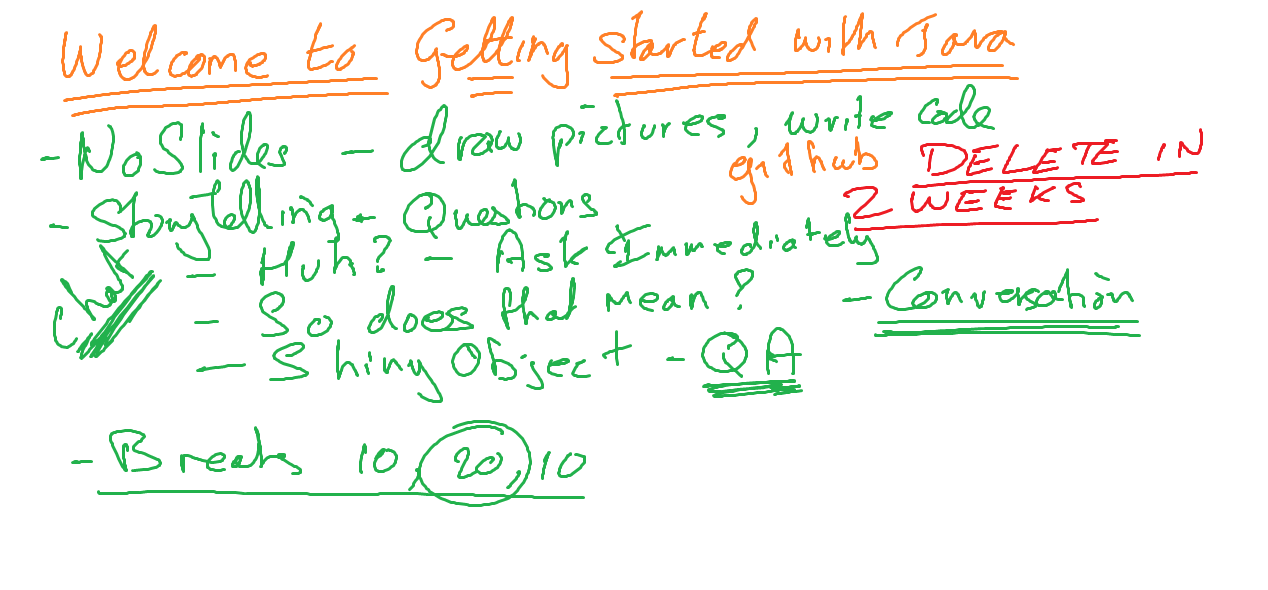 Welcome to Getting started with Java
- No Slides - draw pictures, write code
github DELETE IN
2 WEEKS
- Storytelling - Questions
chat
- Huh? - Ask Immediately
- So does that mean? - Conversation
- Shiny Object - QA
- Breaks 10, 20, 10